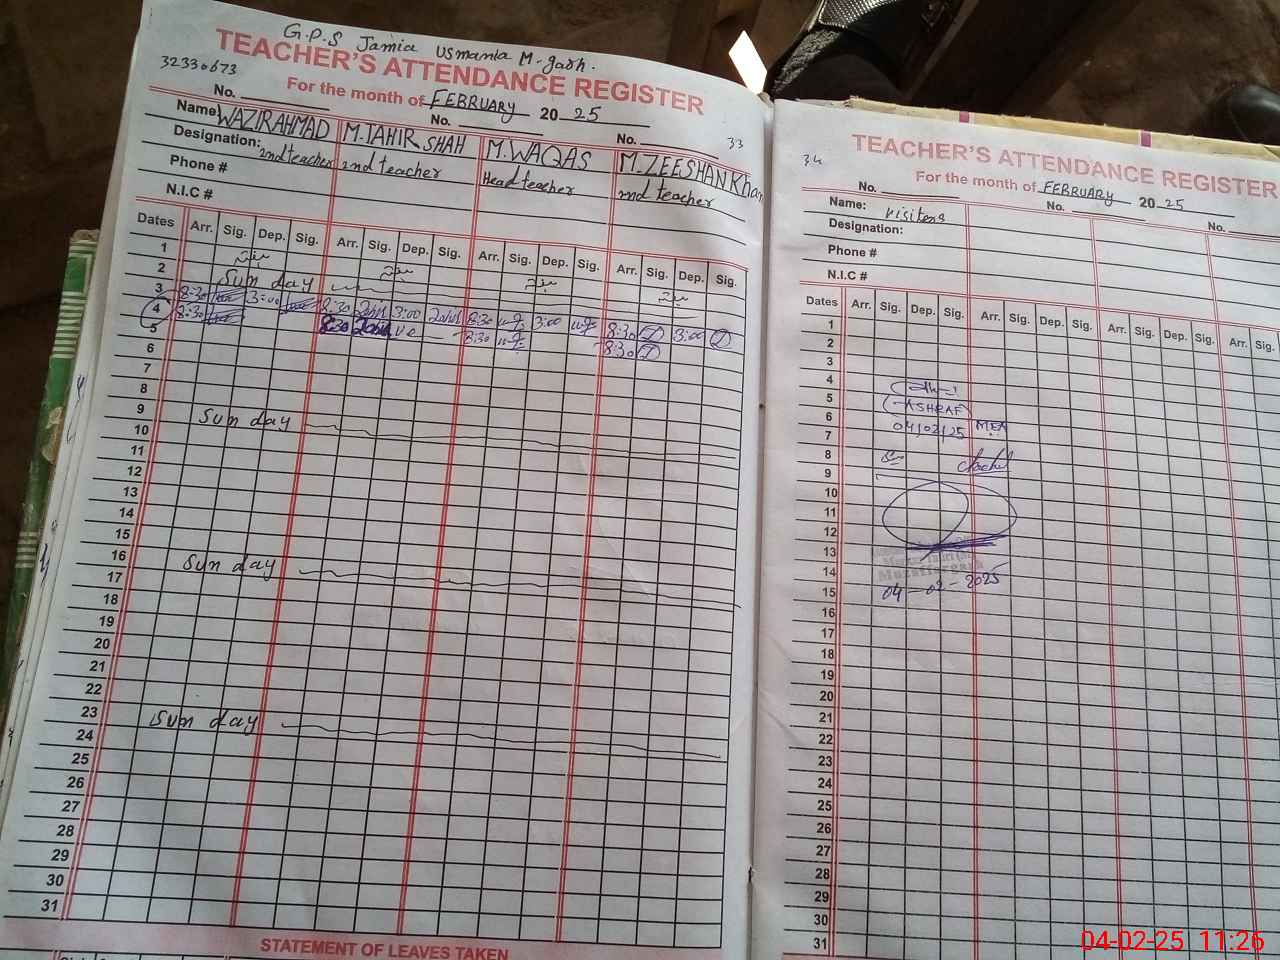 G.P.S Jamia Usmania M-garh.
32330673
TEACHER'S ATTENDANCE REGISTER
For the month of FEBRUARY 20 25
No. No. No. 33
Name WAZIR AHMAD M.TAHIR SHAH M.WAQAS M.ZEESHAN Khan
Designation: 2nd teacher 2nd teacher Head teacher 2nd teacher
Phone #
N.I.C #
Dates Arr. Sig. Dep. Sig. Arr. Sig. Dep. Sig. Arr. Sig. Dep. Sig. Arr. Sig. Dep. Sig.
1
2 Sun day
3 8:30 3:00 8:30 3:00 8:30 3:00 8:30 3:00
4 8:30 8:30 8:30 8:30
5
6
7
8
9 Sun day
10
11
12
13
14
15
16 Sun day
17
18
19
20
21
22
23 Sun day
24
25
26
27
28
29
30
31
STATEMENT OF LEAVES TAKEN
34
TEACHER'S ATTENDANCE REGISTER
For the month of FEBRUARY 20 25
No. No. No.
Name: visiters
Designation:
Phone #
N.I.C #
Dates Arr. Sig. Dep. Sig. Arr. Sig. Dep. Sig. Arr. Sig. Dep. Sig. Arr. Sig.
1
2
3
4
5 ASHRAF
6 04/02/25 MEA
7
8
9
10
11
12
13
14 Muzaffargarh
15 04-02-2025
16
17
18
19
20
21
22
23
24
25
26
27
28
29
30
31
04-02-25 11:26